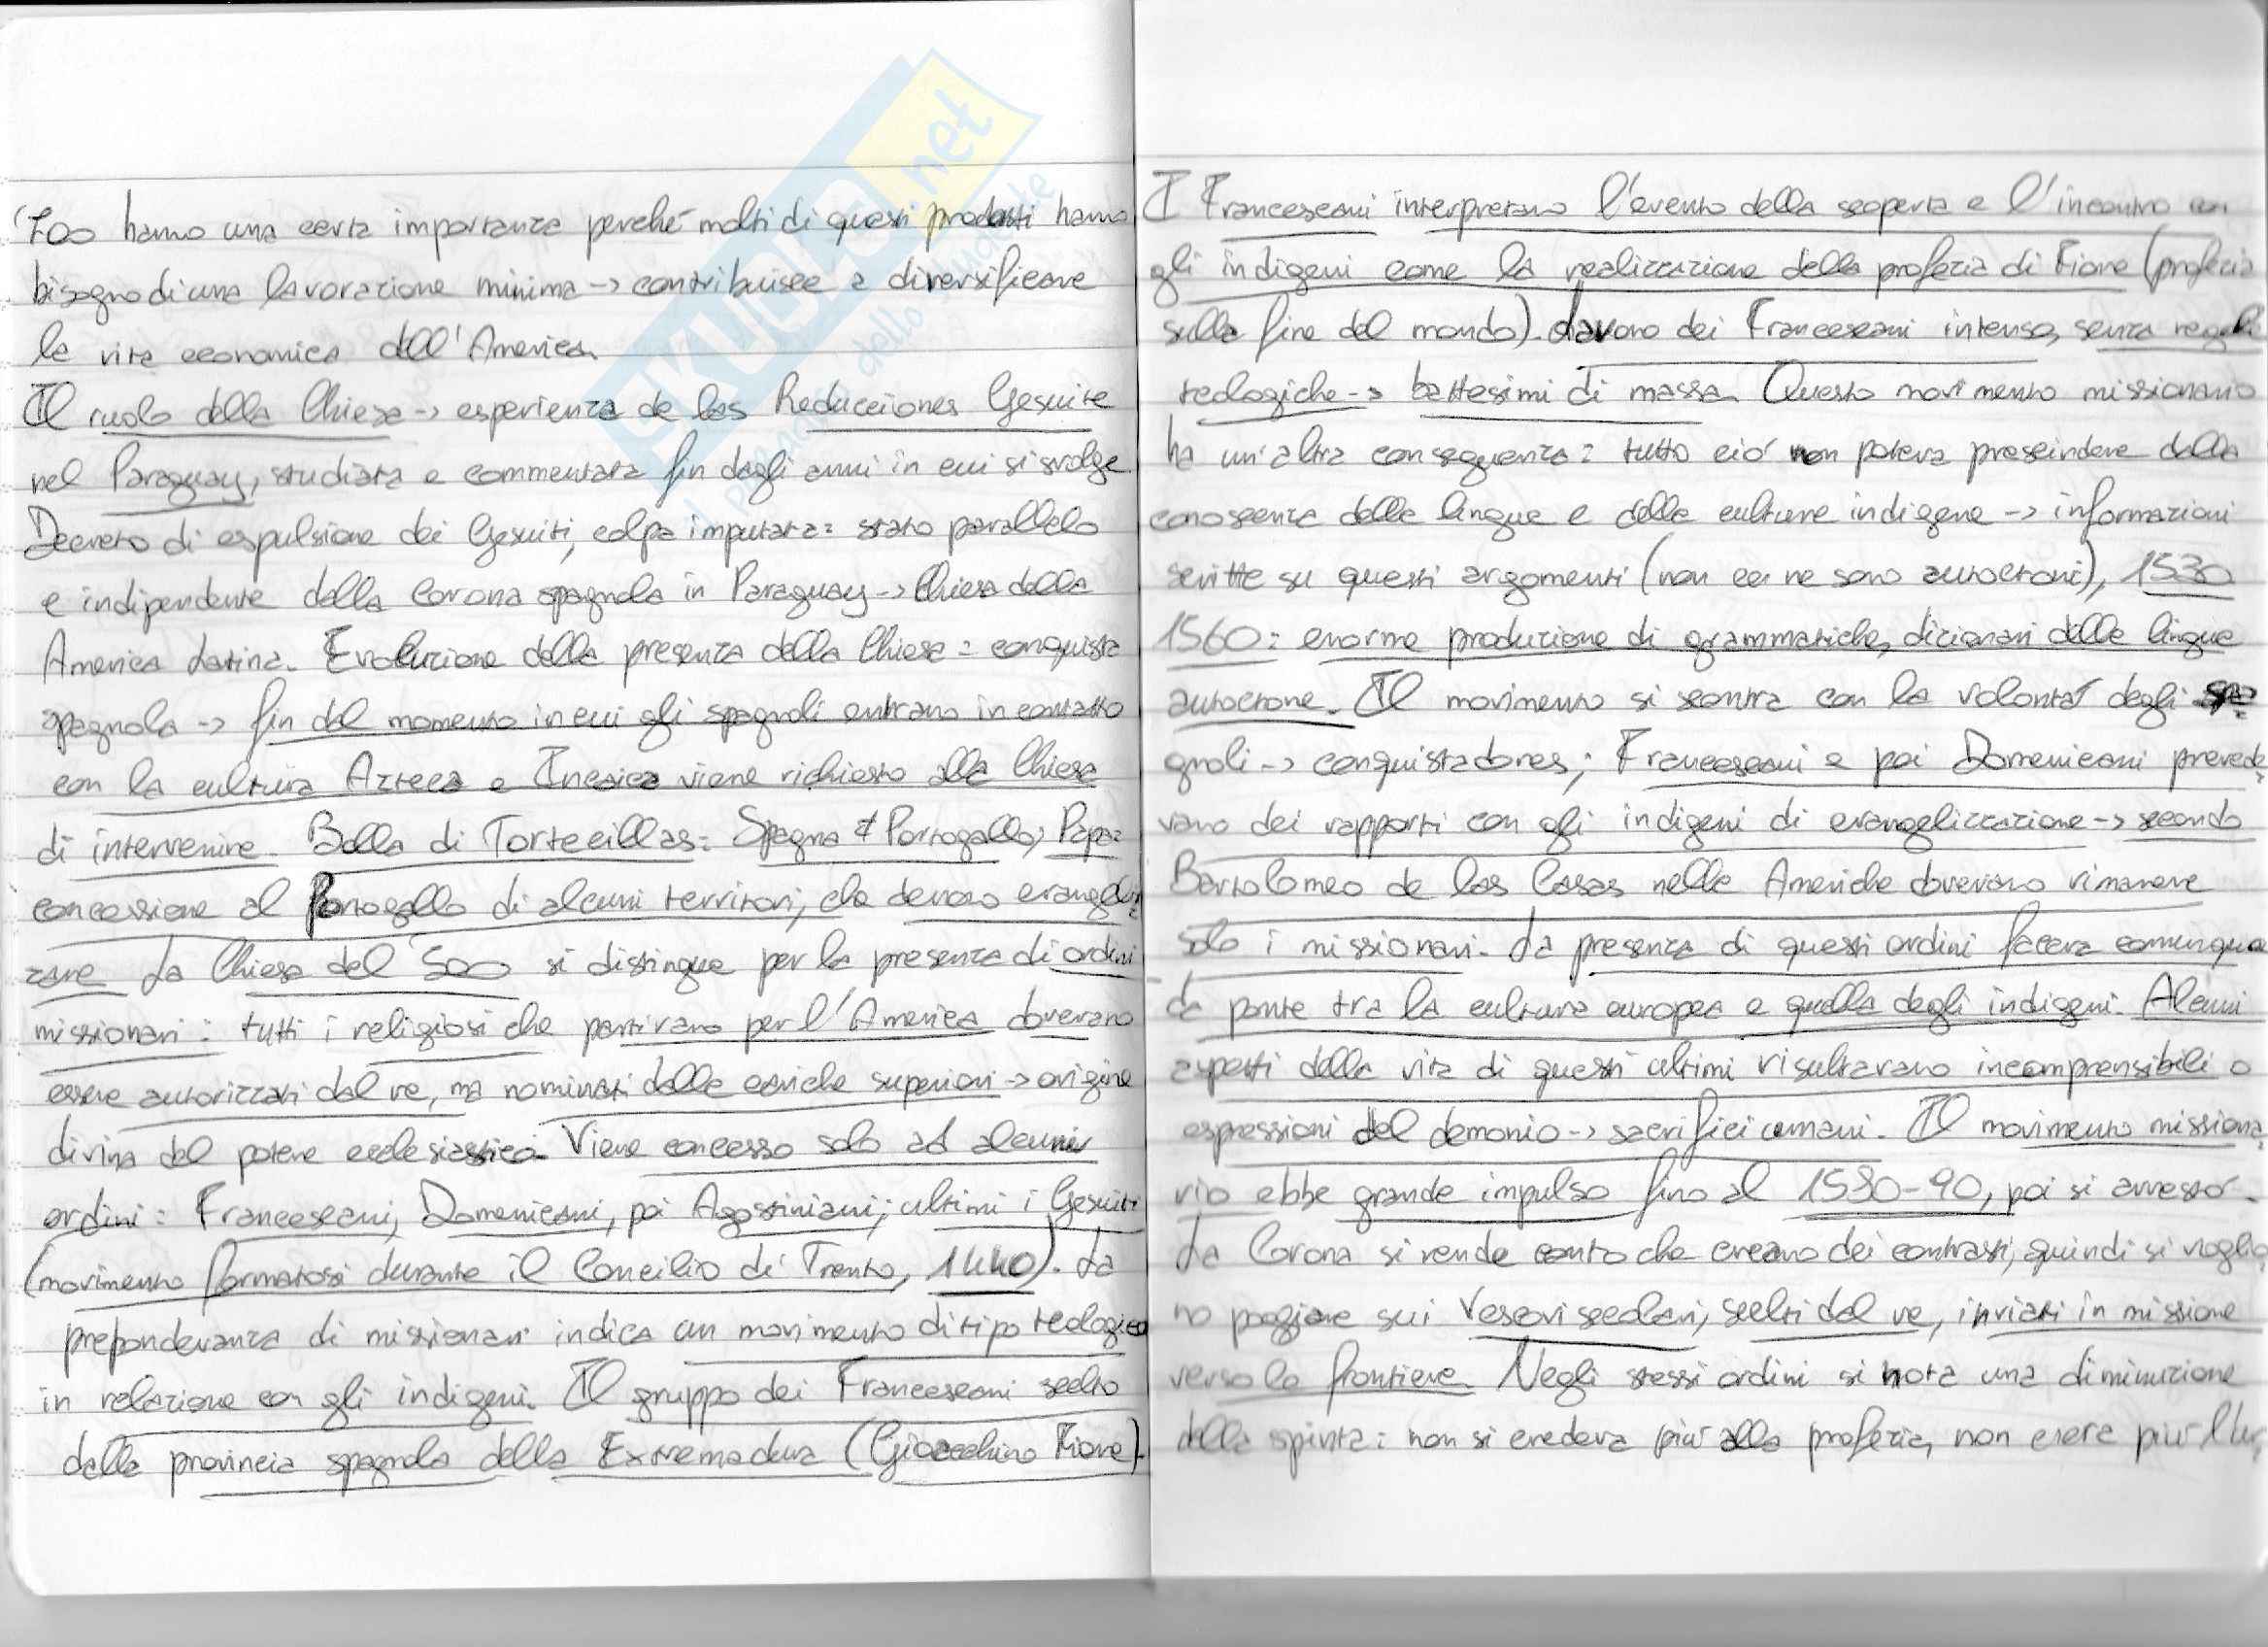 '700 hanno una certa importanza perché molti di questi prodotti hanno
bisogno di una lavorazione minima -> contribuisce a diversificare
la vita economica dell'America.
Il ruolo della Chiesa -> esperienza de las Reducciones Gesuite
nel Paraguay, studiata e commentata fin dagli anni in cui si svolge
Decreto di espulsione dei Gesuiti, colpa imputata: stato parallelo
e indipendente dalla Corona spagnola in Paraguay -> Chiesa della
America Latina. Evoluzione della presenza della Chiesa: conquista
spagnola -> fin dal momento in cui gli spagnoli entrano in contatto
con la cultura Azteca e Incaica viene richiesto alla Chiesa
di intervenire. Bolla di Tortecillas: Spagna ≠ Portogallo, Papa:
concessione al Portogallo di alcuni territori, che devono evangeliz=
zare La Chiesa del '500 si distingue per la presenza di ordini
missionari: tutti i religiosi che partivano per l'America dovevano
essere autorizzati dal re, ma nominati dalle cariche superiori -> origine
divina del potere ecclesiastico. Viene concesso solo ad alcuni
ordini: Francescani, Domenicani, poi Agostiniani; ultimi i Gesuiti
(movimento formatosi durante il Concilio di Trento, 1440). La
preponderanza di missionari indica un movimento di tipo teologico
in relazione con gli indigeni. Il gruppo dei Francescani scelto
dalla provincia spagnola della Extremadura (Gioacchino Fiore).
I Francescani interpretano l'evento della scoperta e l'incontro con
gli indigeni come la realizzazione della profezia di Fiore (profezia
sulla fine del mondo). Lavoro dei Francescani intenso, senza regole
teologiche -> battesimi di massa. Questo movimento missionario
ha un'altra conseguenza: tutto ciò non poteva prescindere dalla
conoscenza delle lingue e delle culture indigene -> informazioni
scritte su questi argomenti (non ce ne sono autoctoni), 1530
1560: enorme produzione di grammatiche, dizionari delle lingue
autoctone. Il movimento si scontra con la volontà degli spa=
gnoli -> conquistadores; Francescani e poi Domenicani prevede=
vano dei rapporti con gli indigeni di evangelizzazione -> secondo
Bartolomeo de las Casas nelle Americhe dovevano rimanere
solo i missionari. La presenza di questi ordini faceva comunque
da ponte tra la cultura europea e quella degli indigeni. Alcuni
aspetti della vita di questi ultimi risultavano incomprensibili o
espressioni del demonio -> sacrifici umani. Il movimento missiona=
rio ebbe grande impulso fino al 1580-90, poi si arrestò.
La Corona si rende conto che creano dei contrasti, quindi si voglio=
no poggiare sui Vescovi secolari, scelti dal re, inviati in missione
verso le frontiere. Negli stessi ordini si nota una diminuzione
della spinta: non si credeva più alla profezia, non c'era più